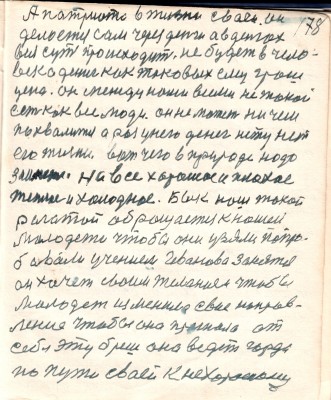 178
А патриота в жизни своей. он
делости сам через деньги а в деньгах
вся суть происходит. не будет в чело-
века денег как таковых ему грош
цена. он между нами всеми не такой
есть как все люди. он не может ни чем
похвалится а раз у него денег нету нет
его жизни. вот чего в природе надо
на все хорошое и плохое
теплое и холодное. Бык нош такой
рогатой обращается к нашей
молодежи чтобы они узяли попро-
бовали учением Иванова занятся
он хочет своим желанием чтобы
молодеж изменила свое направ-
ление чтобы она прогнала от
себя эту она ведет гордо
по пути своей к нехорошому